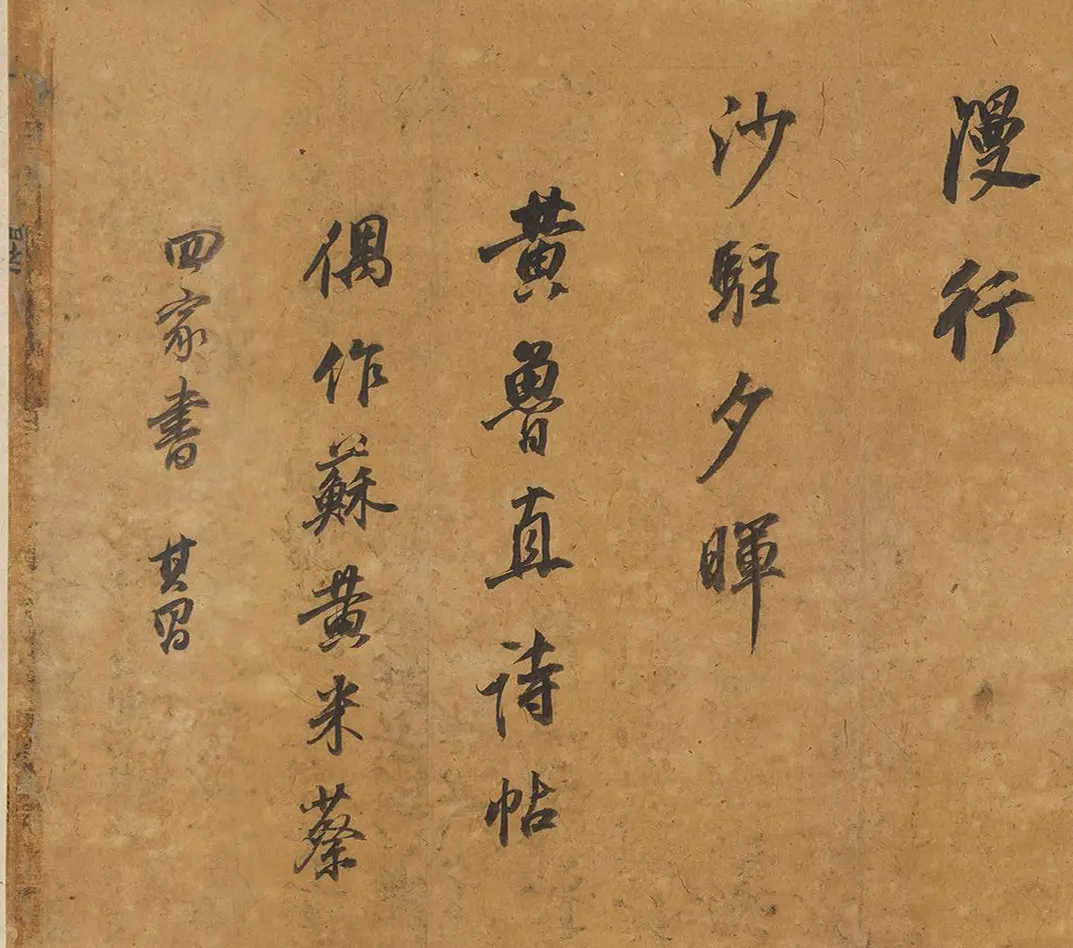 漫行
沙駐夕暉
黃魯直詩帖
偶作蘇黃米蔡
四家書 其昌